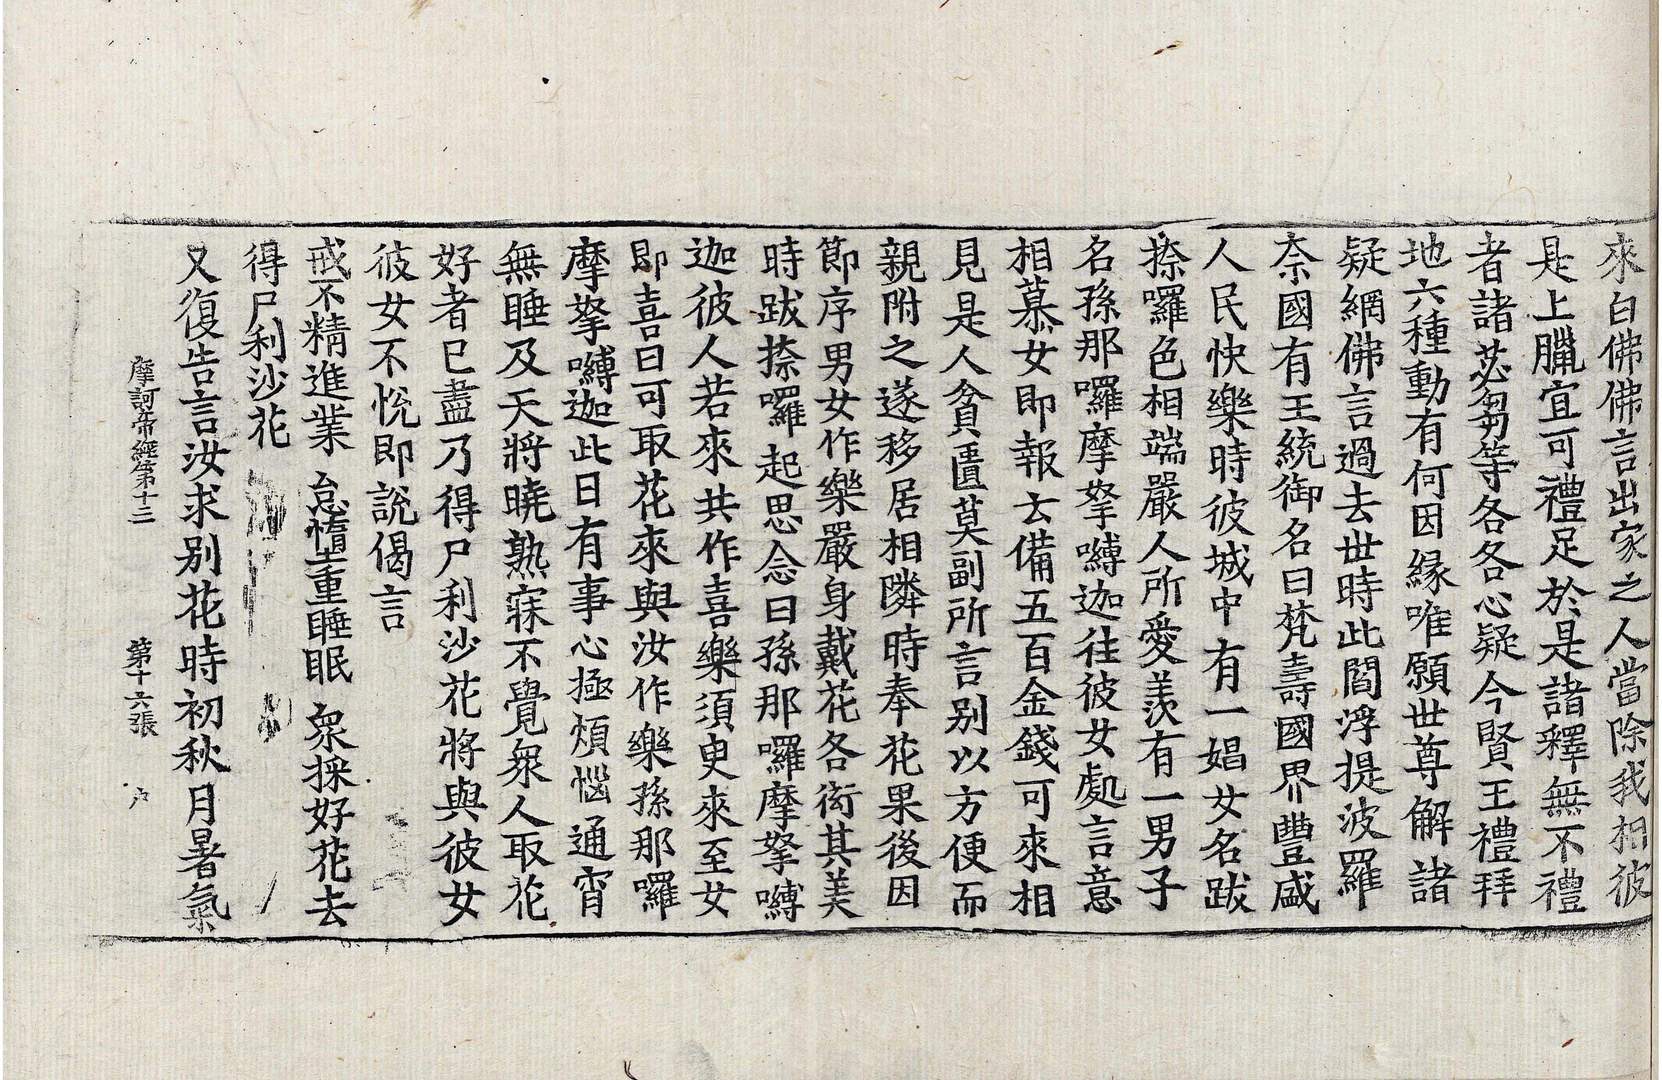 來白佛佛言出家之人當除我相彼
是上臘宜可禮足於是諸釋無不禮
者諸苾芻等各各心疑今賢王禮拜
地六種動有何因緣唯願世尊解諸
疑網佛言過去世時此閻浮提波羅
柰國有王統御名曰梵壽國界豐盛
人民快樂時彼城中有一娼女名跋
捺囉色相端嚴人所愛羡有一男子
名孫那囉摩拏嚩迦往彼女處言意
相慕女即報云備五百金錢可來相
見是人貧匱莫副所言别以方便而
親附之遂移居相隣時奉花果後因
節序男女作樂嚴身戴花各衒其美
時跋捺囉起思念曰孫那囉摩拏嚩
迦彼人若來共作喜樂須臾來至女
即喜曰可取花來與汝作樂孫那囉
摩拏嚩迦此日有事心極煩惱通宵
無睡及天將曉熟寐不覺衆人取花
好者已盡乃得尸利沙花將與彼女
彼女不悅即說偈言
戒不精進業 怠惰重睡眠 衆採好花去
得尸利沙花
又復告言汝求别花時初秋月暑氣
摩訶帝經第十三 第十六張 户